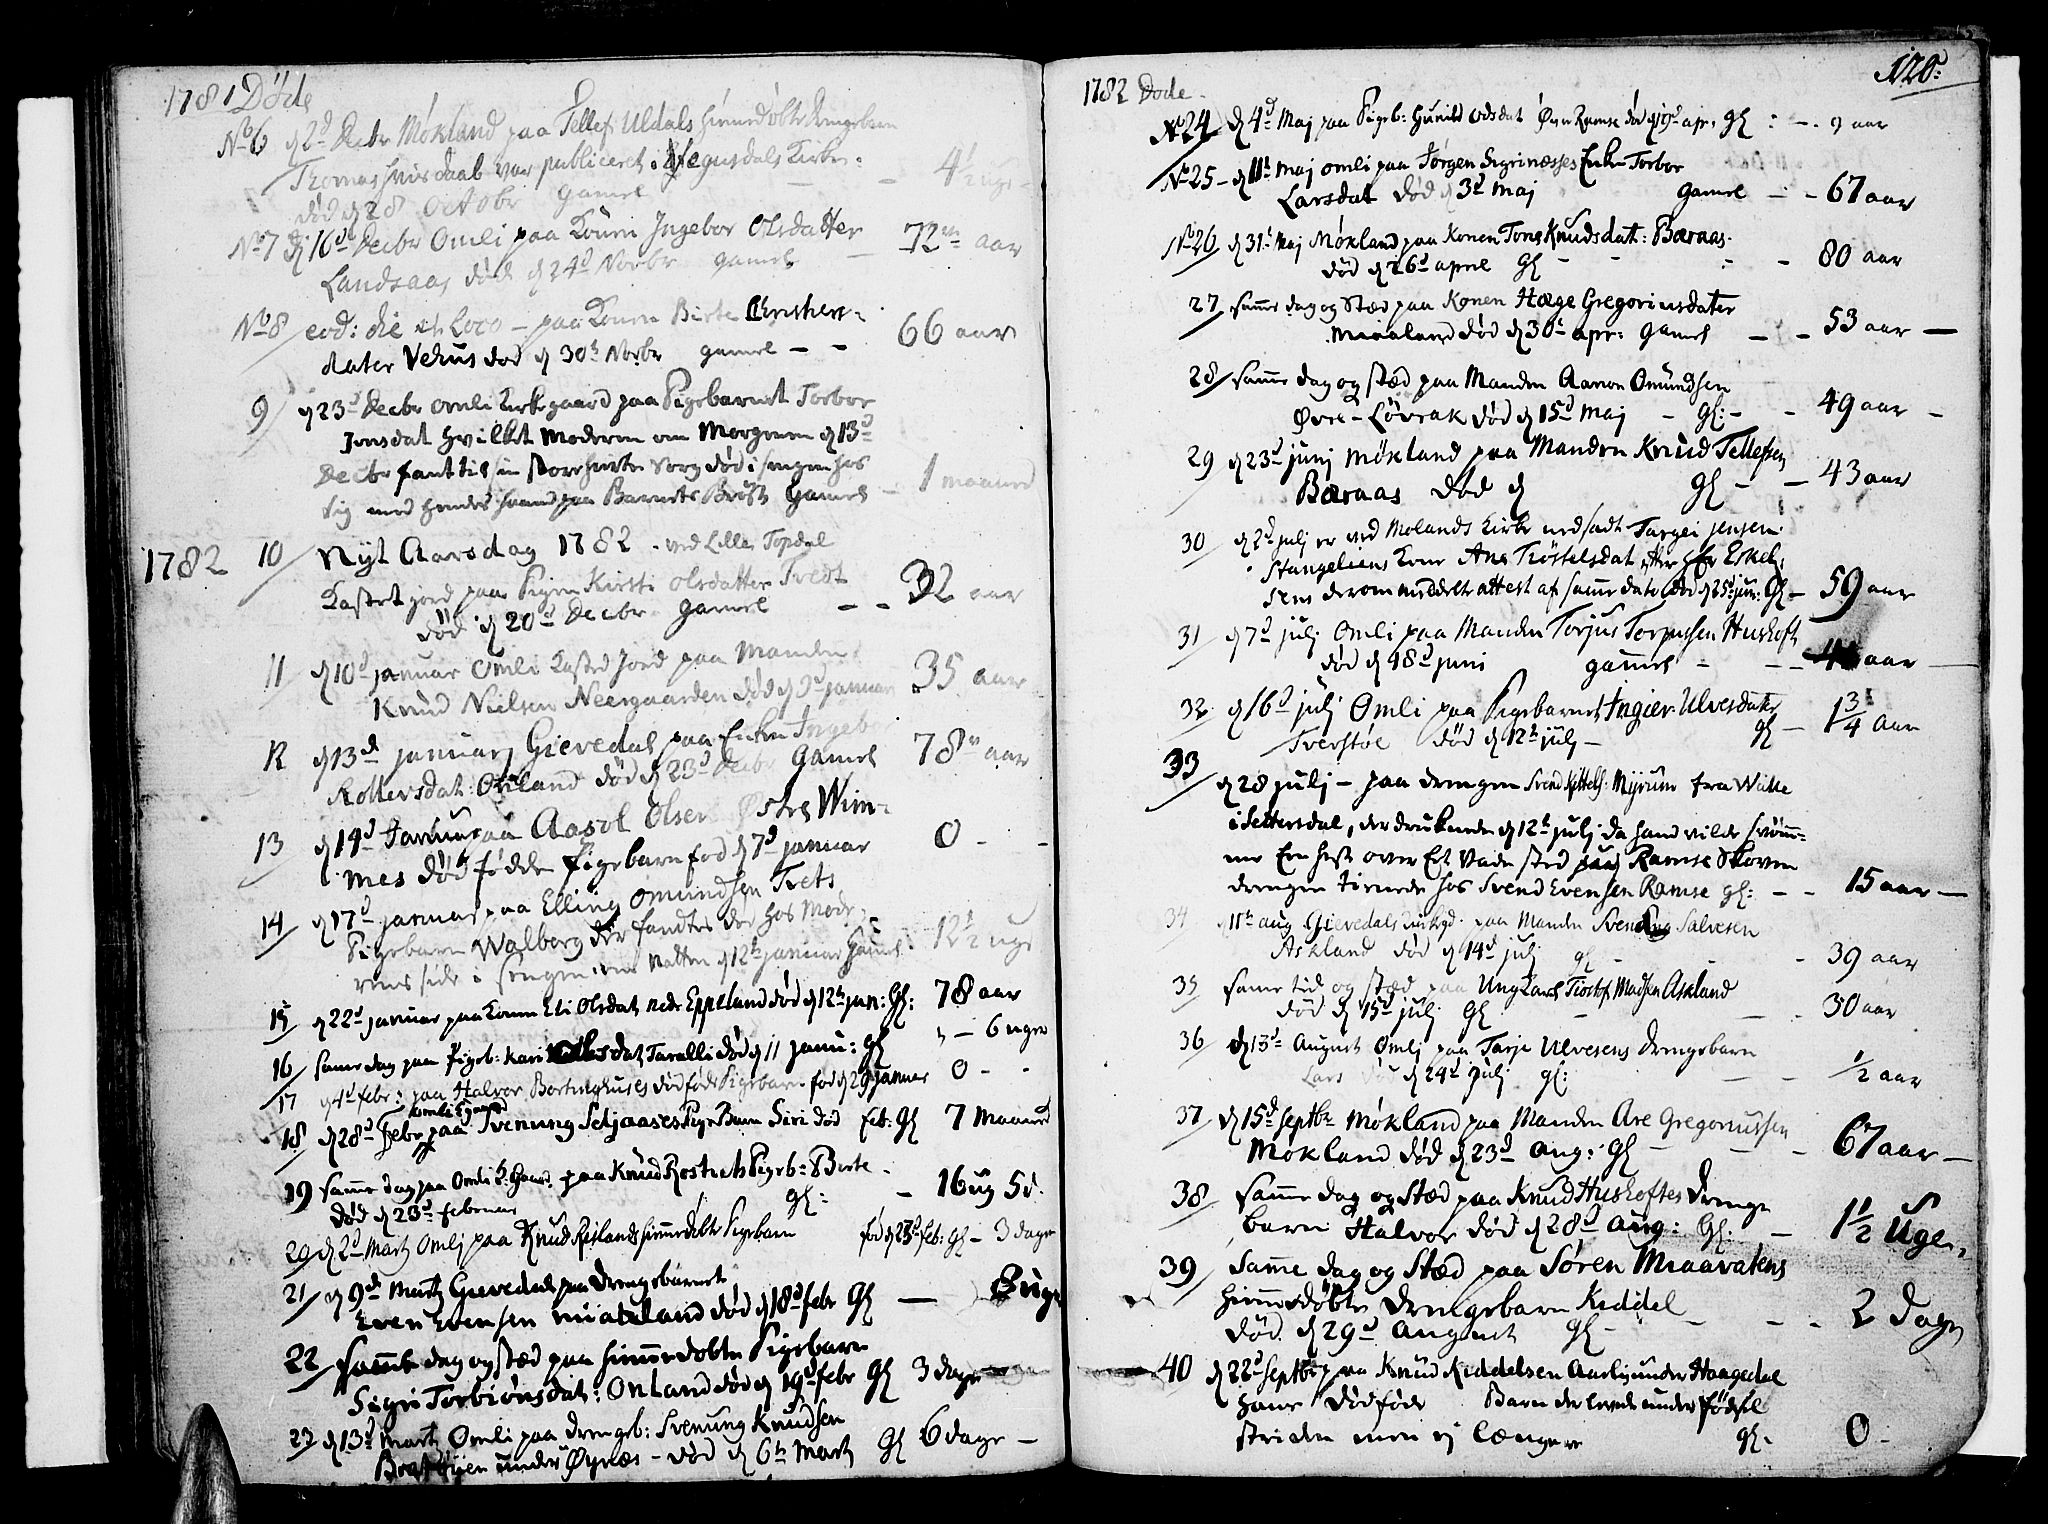 1781 Döde
No 6 d 2d Decbr Mökland paa Tellef Uldals hiemedøbte drengebarn
Thomas hvis daab var publiceret i Vegusdals Kirke: 4 1/2 uge
död d 28 Octobr gamel
No 7 d 16d Decbr Omli paa Konen Ingebor Olsdatter 72 aar
Landsaas död d 24d Novbr gamel
No 8 eod: die et Loco – paa Konen Birte Christen- 66 aar
dater Vehus död d 30t Novbr gamel – –
9 d 23d Decbr Omli Kirkegaard paa Pigebarnet Torbor
Jensdat hvilket Moderen om Morgenen d 13d
Decbr fant til sin store hierte Sorg död i sengen hos
sig med hendes haand paa Barnets Bröst Gamel – 1 maaned
1782 10 Nyt Aarsdag 1782 . ved Lille Topdal
Kastet jord paa Pigen Kirsti Olsdatter Tvedt 32 aar
död d 20d Decbr gamel – –
11 d 10d januar Omli Kasted Jord paa Manden 35 aar
Knud Nielsen Neergaarden död d 3d januar
12 d 13d januarj Gievedal paa Enken Ingebor 78 aar
Rollevsdat: Onland död d 23d Decbr Gamel
13 d 14d Januar paa Aasol Olsen Østre Wim- 0 – –
mes död födde Pigebarn fod d 7d januar
14 d 17d januar paa Elling Omundsen Tvets
Pigebarn Walborg der fandtes der hos Mode- 12 1/2 uge
rens side i sengen om natten d 12t januar Gamel
15 d 22d januar paa Konen Eli Olsdat nedr Eppeland död d 12t jan: Gl: 78 aar
16 same dag paa Pigeb: Kari Olsdat Taralli död d 11 janu: gl – 6 uger
17 d 4d febr: paa Halvor Bortinghuses dödföde Pigebarn fod d 29 januar 0 – –
18 d 28d Febr paa Omli Kgaard Svenung Seljaases Pige Barn Siri död feb: gl 7 Maaned
19 samme dag paa Omli K: Gaard paa Knud Rostvets Pigeb: Birte – 16 ug 5 d.
död d 23d februar gl:
20 d 2d Martz Omlj paa Knud Reilands hiemedöbte Pigebarn föd d 23d feb: gl – 3 dage
21 d 9d Martz Gievedal paa drengebarnet
Even Evensen Mialand död d 18d febr gl – 3 uge
22 samme dag og stæd paa hiemedobte Pigebarn
Sigri Torbiönsdat: Onland död d 19d febr gl 3 dage
23 d 13d Martz Omli paa drengeb: Svenung Knudsen
under Øynæs – död d 6t Martz gl 6 dage –
120:
1782 Döde.
No 24 d 4d Maj paa Pigeb: Gunild Odsdat Øvre Ramse död d 19d apr: gl : – . 9 aar
No 25 – d 11t maj Omli paa Jörgen Sigrinæsses Enke Torbor
Larsdat död d 3d maj gamel – – 67 aar
No 26 d 31t Maj Mökland paa Konen Tone Knudsdat: Bæraas.
död d 26d april gl – – 80 aar
27 samme dag og stæd paa Konen Hæge Gregoriusdater
Mialand död d 30t apr: gamel – – 53 aar –
28 samme dag og stæd paa Manden Aanon Omundsen
Øvre – Lövrak död d 15d maj – gl: – – 49 aar –
29 d 23d junj Mökland paa Manden Knud Tellefsen
Bæraas död d gl – – 43 aar
30 d 2d julj er ved Molands Kirke nedsadt Targei Jensen
Stangeliens Kone Ane Tröstelsdat efter Hr Eskel-
sens derom meddelte attest af samme dato död d 25d jun: gl – 59 aar
31 d 7d julj Omli paa Manden Torjus Torjussen Huskoft
död d 18d juni gammel – – – aar –
32 d 16d julj Omli paa Pigebarnet Ingier Ulvesdater
Tverstöe död d 12t julj – gl – 1 3/4 aar
33 d 28 julj – paa drengen Svend Kittels: Myrum fra Walle
i Settersdal, der druknede d 12t julj da hand vilde svöm-
me Een hest over Et Vade sted paa Ramse Skoven
drengen tienede hos Svend Evensen Ramse gl: – – 15 aar –
34 d 11t aug Gievedals Kirkegd. paa Manden Svenung Salvesen
Askland död d 14d julj gl – – 39 aar
35 same tid og stæd paa Ung Karl Tiostof Madsen Askland
död d 15d julj gl – – 30 aar
36 d 13d August Omlj paa Tarje Ulvesens drengebarn
Lars död d 24d julj gl: – – 1/2 aar
37 d 15d septbr Mökland paa Manden Are Gregoriussen
Mökland död d 23d aug: gl – – 67 aar –
38 samme dag og stæd paa Knud Huskoftes drenge
barn Halvor död d 28d aug: gl: – 1 1/2 Uger
39 Samme dag og Stæd paa Sören Miaavatens
hiemedöbte drengebarn Kiddel
död d 29d august gl – – – 2 dage
40 d 22d septbr paa Knud Kiddelsen Aarli under Haagedal
hans dödföde Barn der levede under födsel
striden men ej længere gl – 0 –